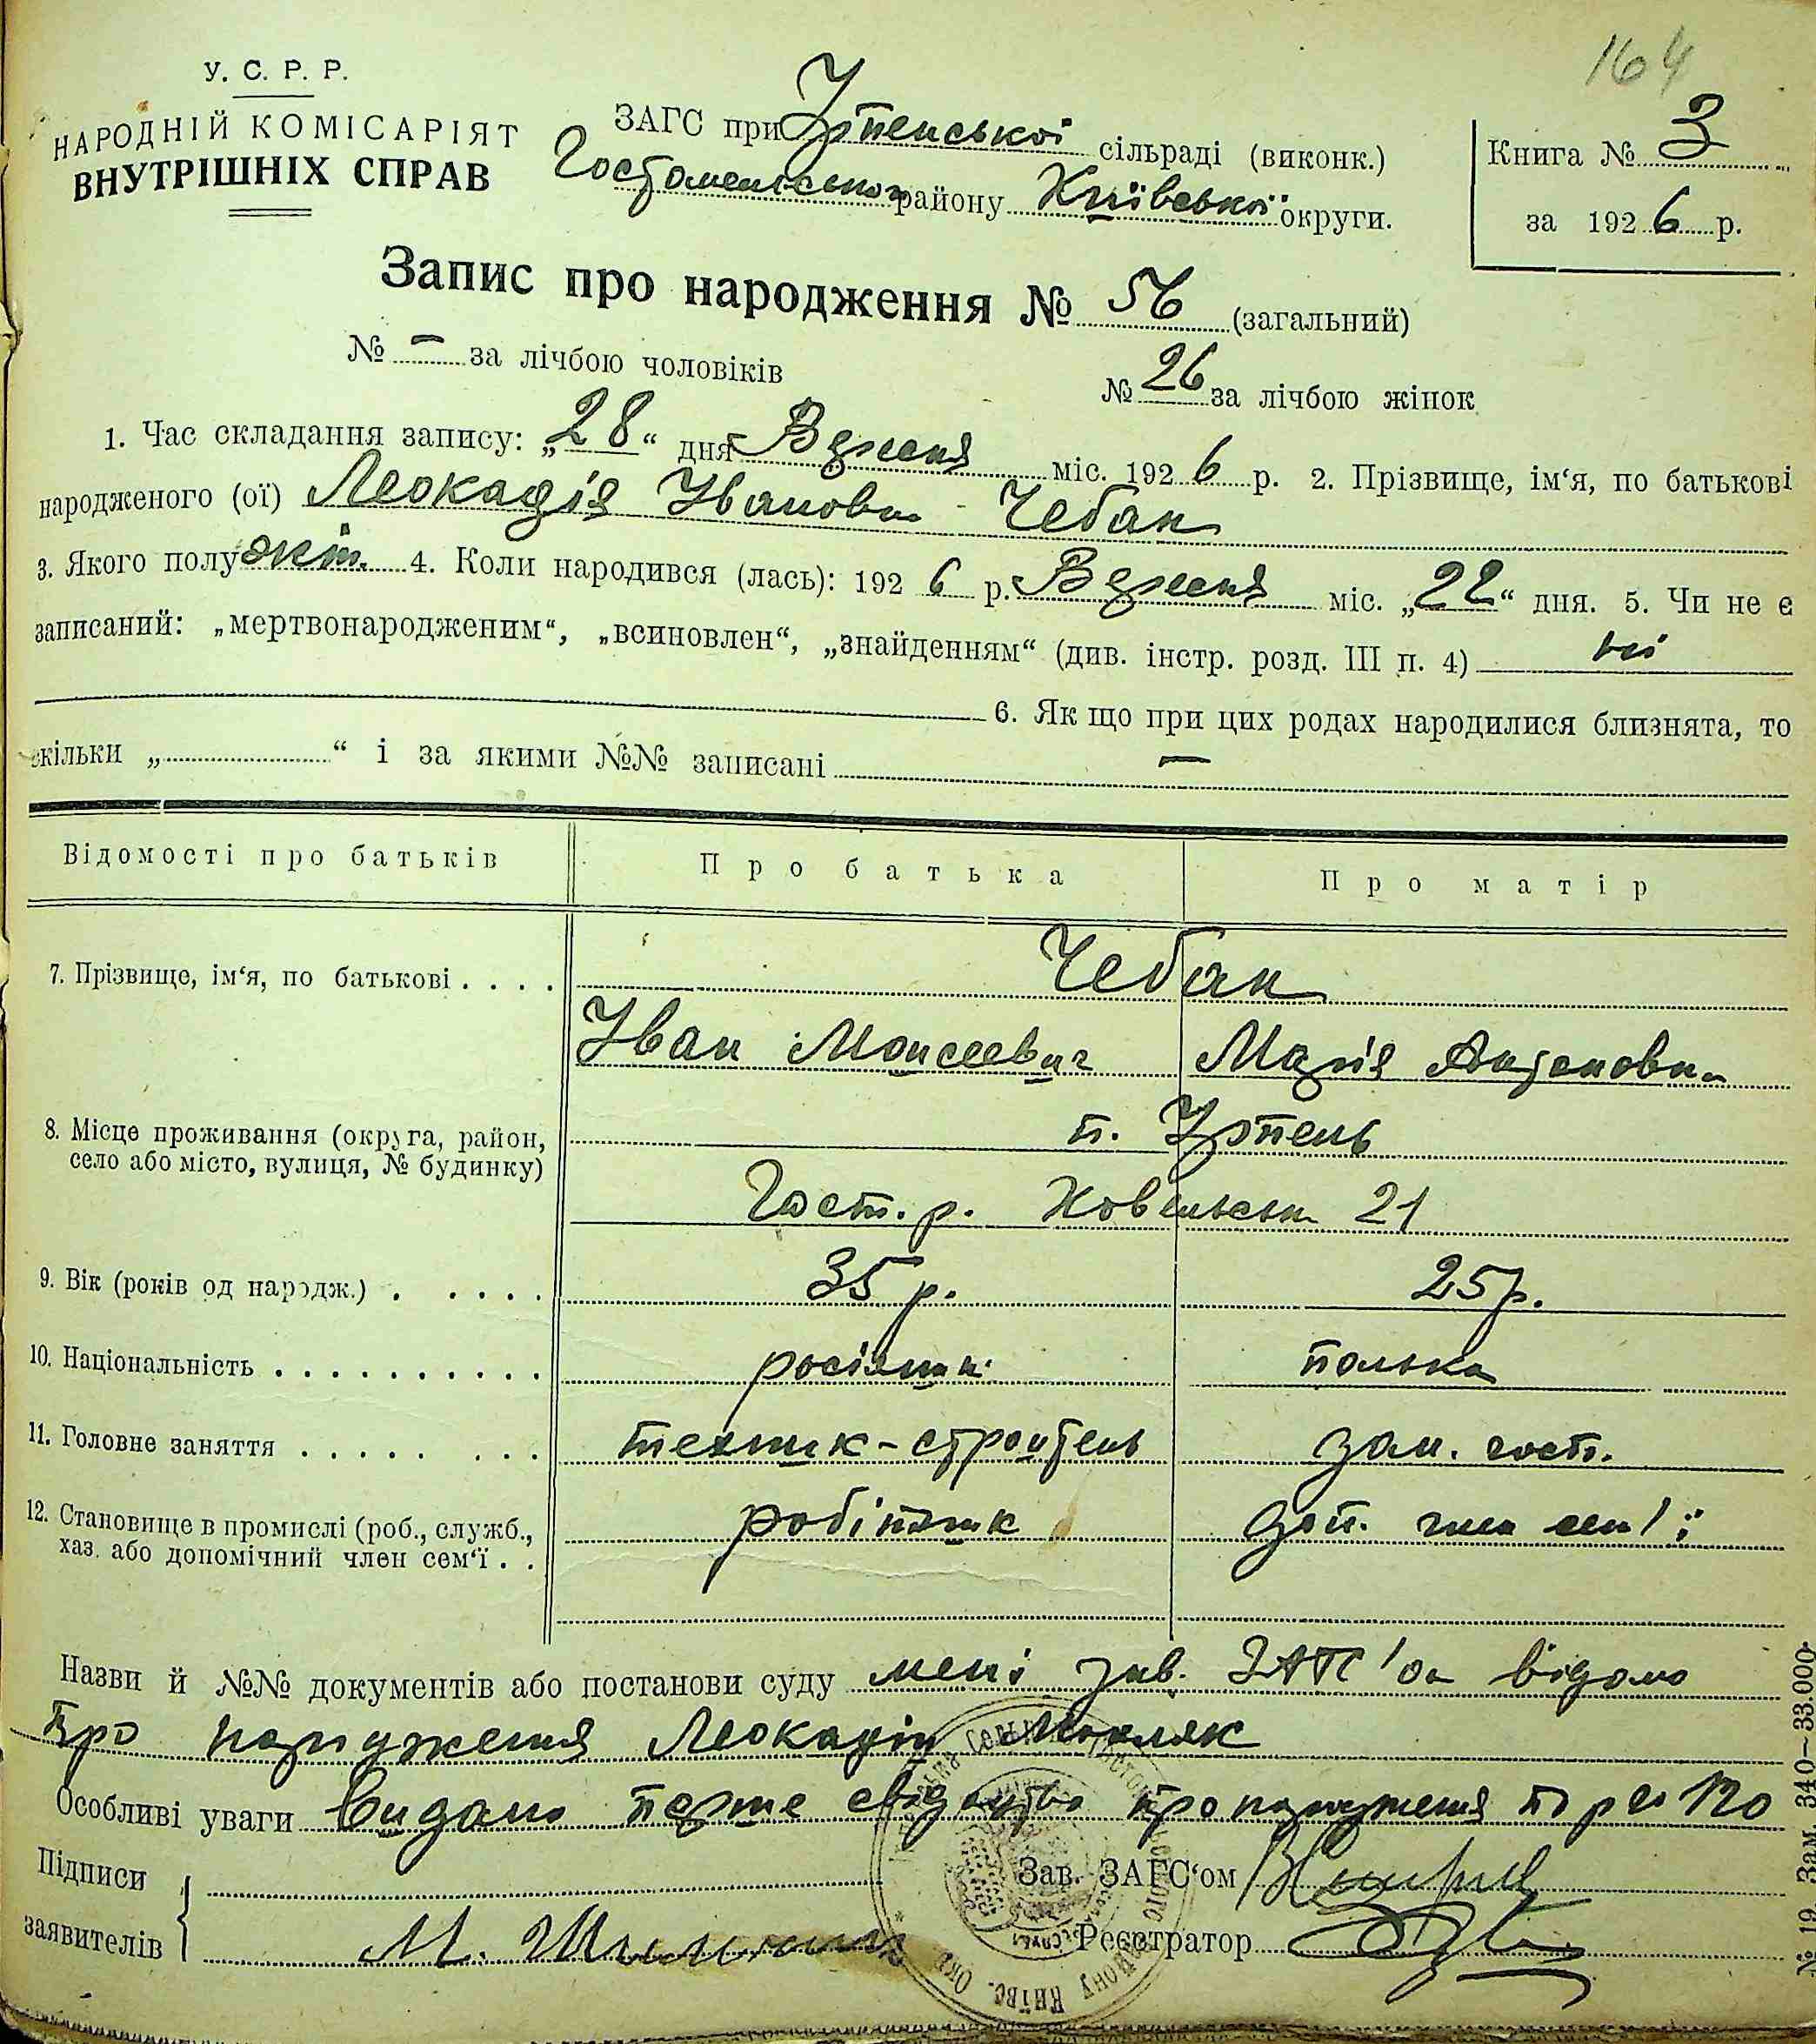 164
У. С. Р. Р.
НАРОДНІЙ КОМІСАРІЯТ
ВНУТРІШНІХ СПРАВ
ЗАГС при Ірпенської сільраді (виконк.)
Гостомельського району Київської округи.
Книга № 3
за 1926 р.
Запис про народження № 56 (загальний)
№ – за лічбою чоловіків
№ 26 за лічбою жінок
1. Час складання запису: „28“ дня Вересня міс. 1926 р. 2. Прізвище, ім‘я, по батькові
народженого (ої) Леокадія Івановн Чебан
3. Якого полу жін. 4. Коли народився (лась): 1926 р. Вересня міс. „22“ дня. 5. Чи не є
записаний: „мертвонародженим“, „всиновлен“, „знайденням“ (див. інстр. розд. III п. 4) ні
6. Як що при цих родах народилися близнята, то
скільки „ “ і за якими №№ записані –
Відомості про батьків
Про батька
Про матір
7. Прізвище, ім‘я, по батькові . . . .
Чебан
Іван Моисеевич
Марія Антоновн
8. Місце проживання (округа, район,
село або місто, вулиця, № будинку)
п. Ірпень
Гост. р. Ковельськ 21
9. Вік (років од народж.) . . . . .
35 р.
25 р.
10. Національність . . . . . . . . . .
росіянин
полька
11. Головне заняття . . . . . . . .
техник-строитель
дом. госп.
12. Становище в промислі (роб., служб.,
хаз. або допомічний член сем‘ї . .
робітник
доп. член сем'ї
Назви й №№ документів або постанови суду мені зав. ЗАГС'ом відомо
про народження Леокадії
Особливі уваги видано перше свідоцтво про народження по р. 120
Підписи
заявителів
М.
Зав. ЗАГС‘ом
Реєстратор
№ 19. Зам. 340—33.000.